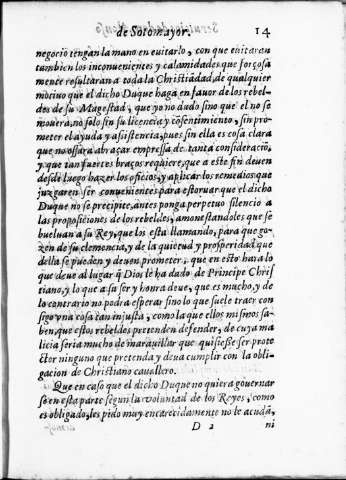 de Sotomayor. 14
negocio tengan la mano en euitarlo, con que euitaran
tambien los inconuenientes y calamidades que forçosa
mente resultaran a toda la Christiãdad, de qualquier
motiuo que el dicho Duque haga en fauor de los rebel-
des de su Magestad, que yo no dudo sino que el no se
mouera, no solo sin su licencia y cõsentimiento, sin pro-
meter el ayuda y assistencia, pues sin ella es cosa clara
que no ossara abraçar empressa de tanta consideraciõ,
y que tan fuertes braços requiere, que a este fin deuen
desde luego hazer los oficios, y aplicar los remedios que
juzgaren ser conuenientes para estoruar que el dicho
Duque no se precipite, antes ponga perpetuo silencio a
las proposiciones de los rebeldes, amonestandoles que se
bueluan a su Rey, que los esta llamando, para que go-
zen de su clemencia, y de la quietud y prosperidad que
della se pueden y deuen prometer, que en esto hara lo
que deue al lugar q̃ Dios le ha dado de Principe Chris
tiano, y lo que a su ser y honra deue, que es mucho, y de
lo contrario no podra esperar sino lo que suele traer con
sigo vna cosa tan injusta, como la que ellos mismos sa-
ben, que estos rebeldes pretenden defender, de cuya ma
licia seria mucho de marauillar que quisiesse ser prote
ctor ninguno que pretenda y deua cumplir con la obli-
gacion de Christiano cauallero.
Que en caso que el dicho Duque no quiera gouernar
se en esta parte segun la voluntad de los Reyes, como
es obligado, les pido muy encarecidamente no le acudã,
D 2 ni